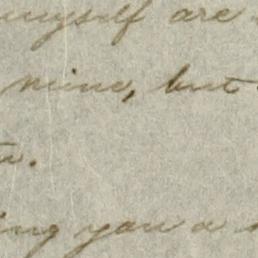 myself are
mine, but
ing you a